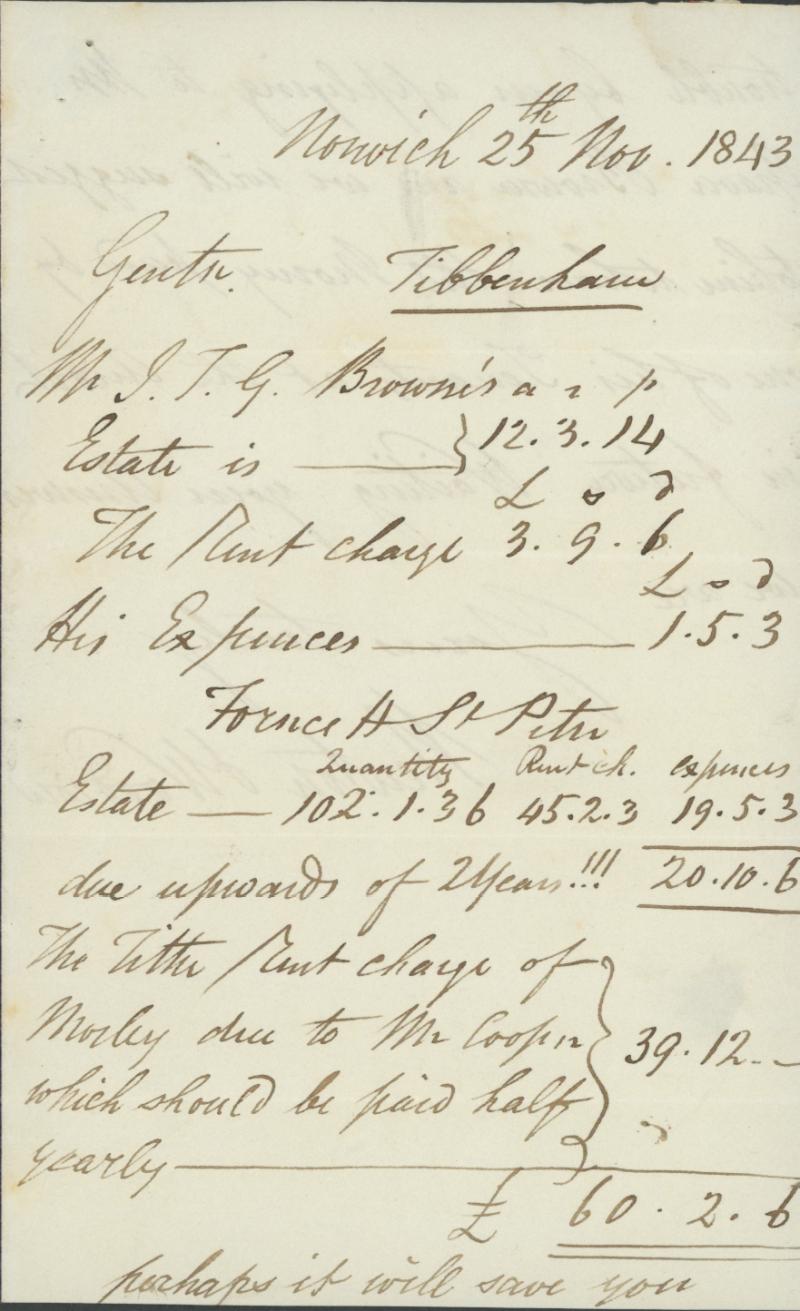 Norwich 25th Nov. 1843
Gentn. Tibbenham
Mr J. T. G. Browne's a r p
Estate is } 12. 3. 14
£ s d
The Rent charge 3. 9. 6
£ s d
His Expences 1. 5. 3
Forncett St Peter
Quantity Rent ch. expences
Estate — 102. 1. 36 45. 2. 3 19. 5. 3
due upwards of 2 Years!!! 20. 10. 6
The Tithe Rent charge of
Morley due to Mr Cooper } 39. 12. -
which should be paid half
yearly
£ 60. 2. 6
perhaps it will save you